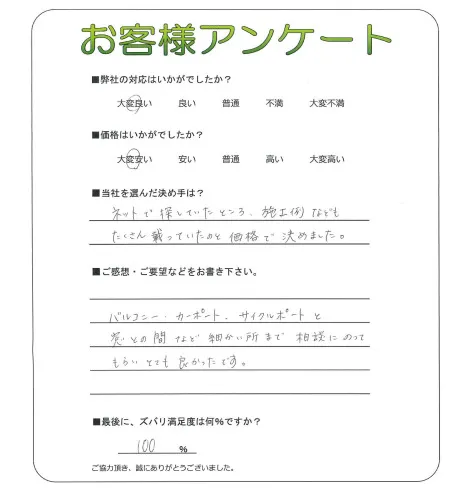 お客様アンケート
■弊社の対応はいかがでしたか？
大変良い 良い 普通 不満 大変不満
■価格はいかがでしたか？
大変安い 安い 普通 高い 大変高い
■当社を選んだ決め手は？
ネットで探していたところ、施工例なども
たくさん載っていたのと価格で決めました。
■ご感想・ご要望などをお書き下さい。
バルコニー・カーポート、サイクルポートと
との間など細かい所まで相談にのって
もらいとても良かったです。
■最後に、ズバリ満足度は何%ですか？
100 %
ご協力頂き、誠にありがとうございました。